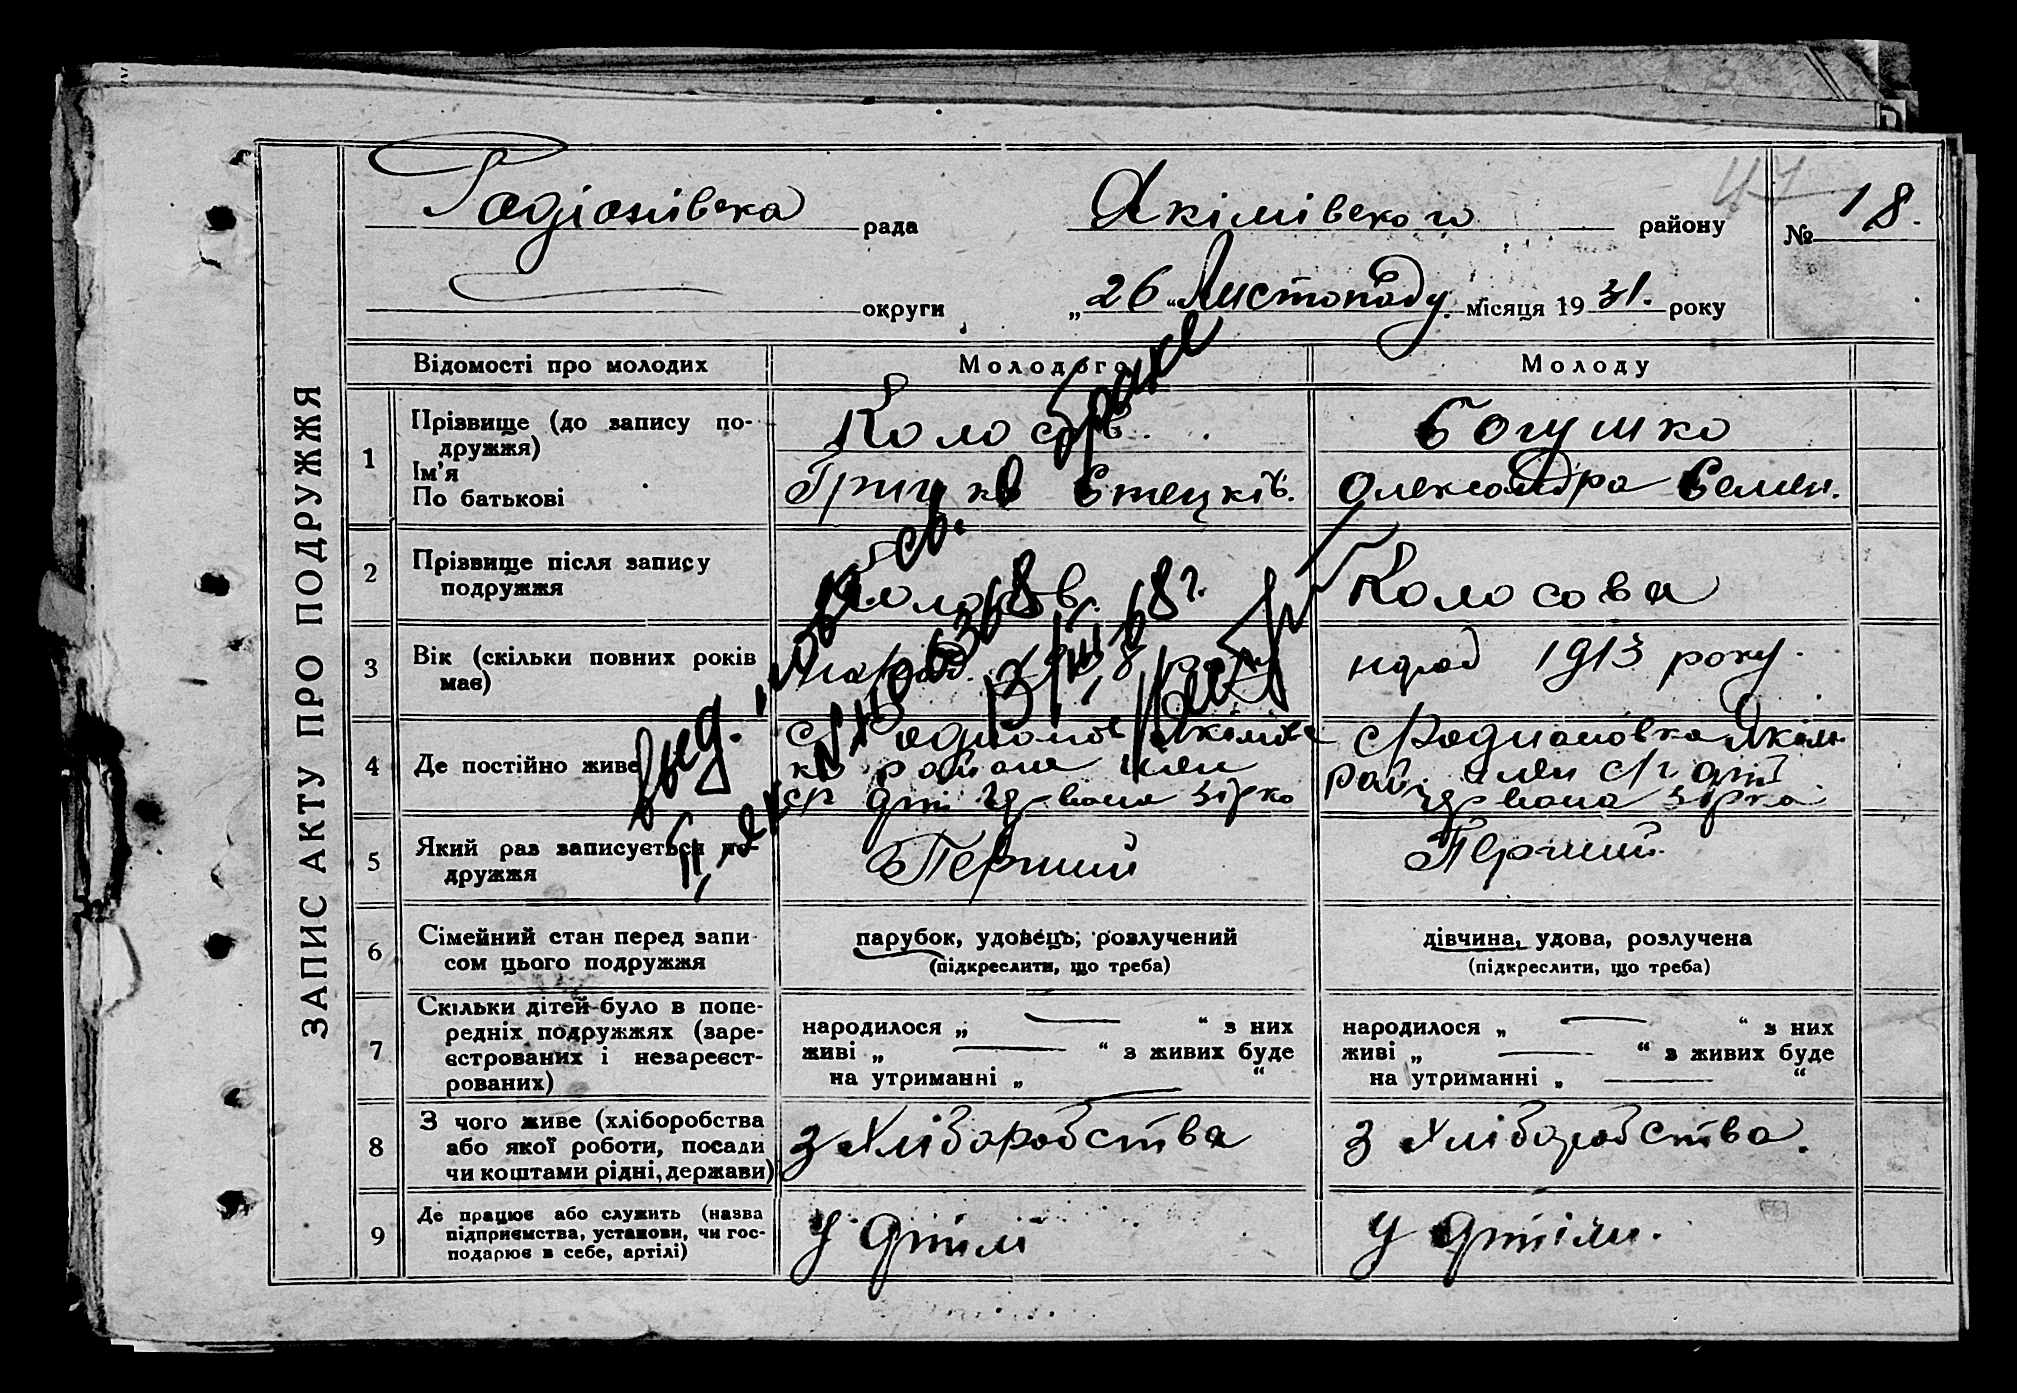 ЗАПИС АКТУ ПРО ПОДРУЖЖЯ
Радіонівска рада Якімівского району № 18.
47
округи „26 „ Листопаду місяця 1931. року
Відомості про молодих Молодого Молоду
1 Прізвище (до запису по-
дружжя)
Ім'я
По батькові
Колосов.
Грицько Стецьків.
Богушко
Олександра Семен.
2 Прізвище після запису
подружжя
Колосов.
Колосова
3 Вік (скільки повних років
має)
народ 1913 року.
4 Де постійно живе
с. Родионов Якімовс
ко района член
с/г арт Червона зірко
с Родионовка Якім.
рай. член с/г арт
Червона зірка
5 Який раз записується по-
дружжя
Перший
Перший.
6 Сімейний стан перед запи-
сом цього подружжя
парубок, удовець, розлучений
(підкреслити, що треба)
дівчина, удова, розлучена
(підкреслити, що треба)
7 Скільки дітей було в попе-
редніх подружжях (заре-
єстрованих і незареєст-
рованих)
народилося „ “ з них
живі „ “ з живих буде
на утриманні „ “
народилося „ “ з них
живі „ “ з живих буде
на утриманні „ “
8 З чого живе (хліборобства
або якої роботи, посади
чи коштами рідні, держави)
з Хліборобства
з Хліборобства.
9 Де працює або служить (назва
підприємства, установи, чи гос-
подарює в себе, артілі)
У Артілі
У Артіли.
выд. св. браке
68 г.